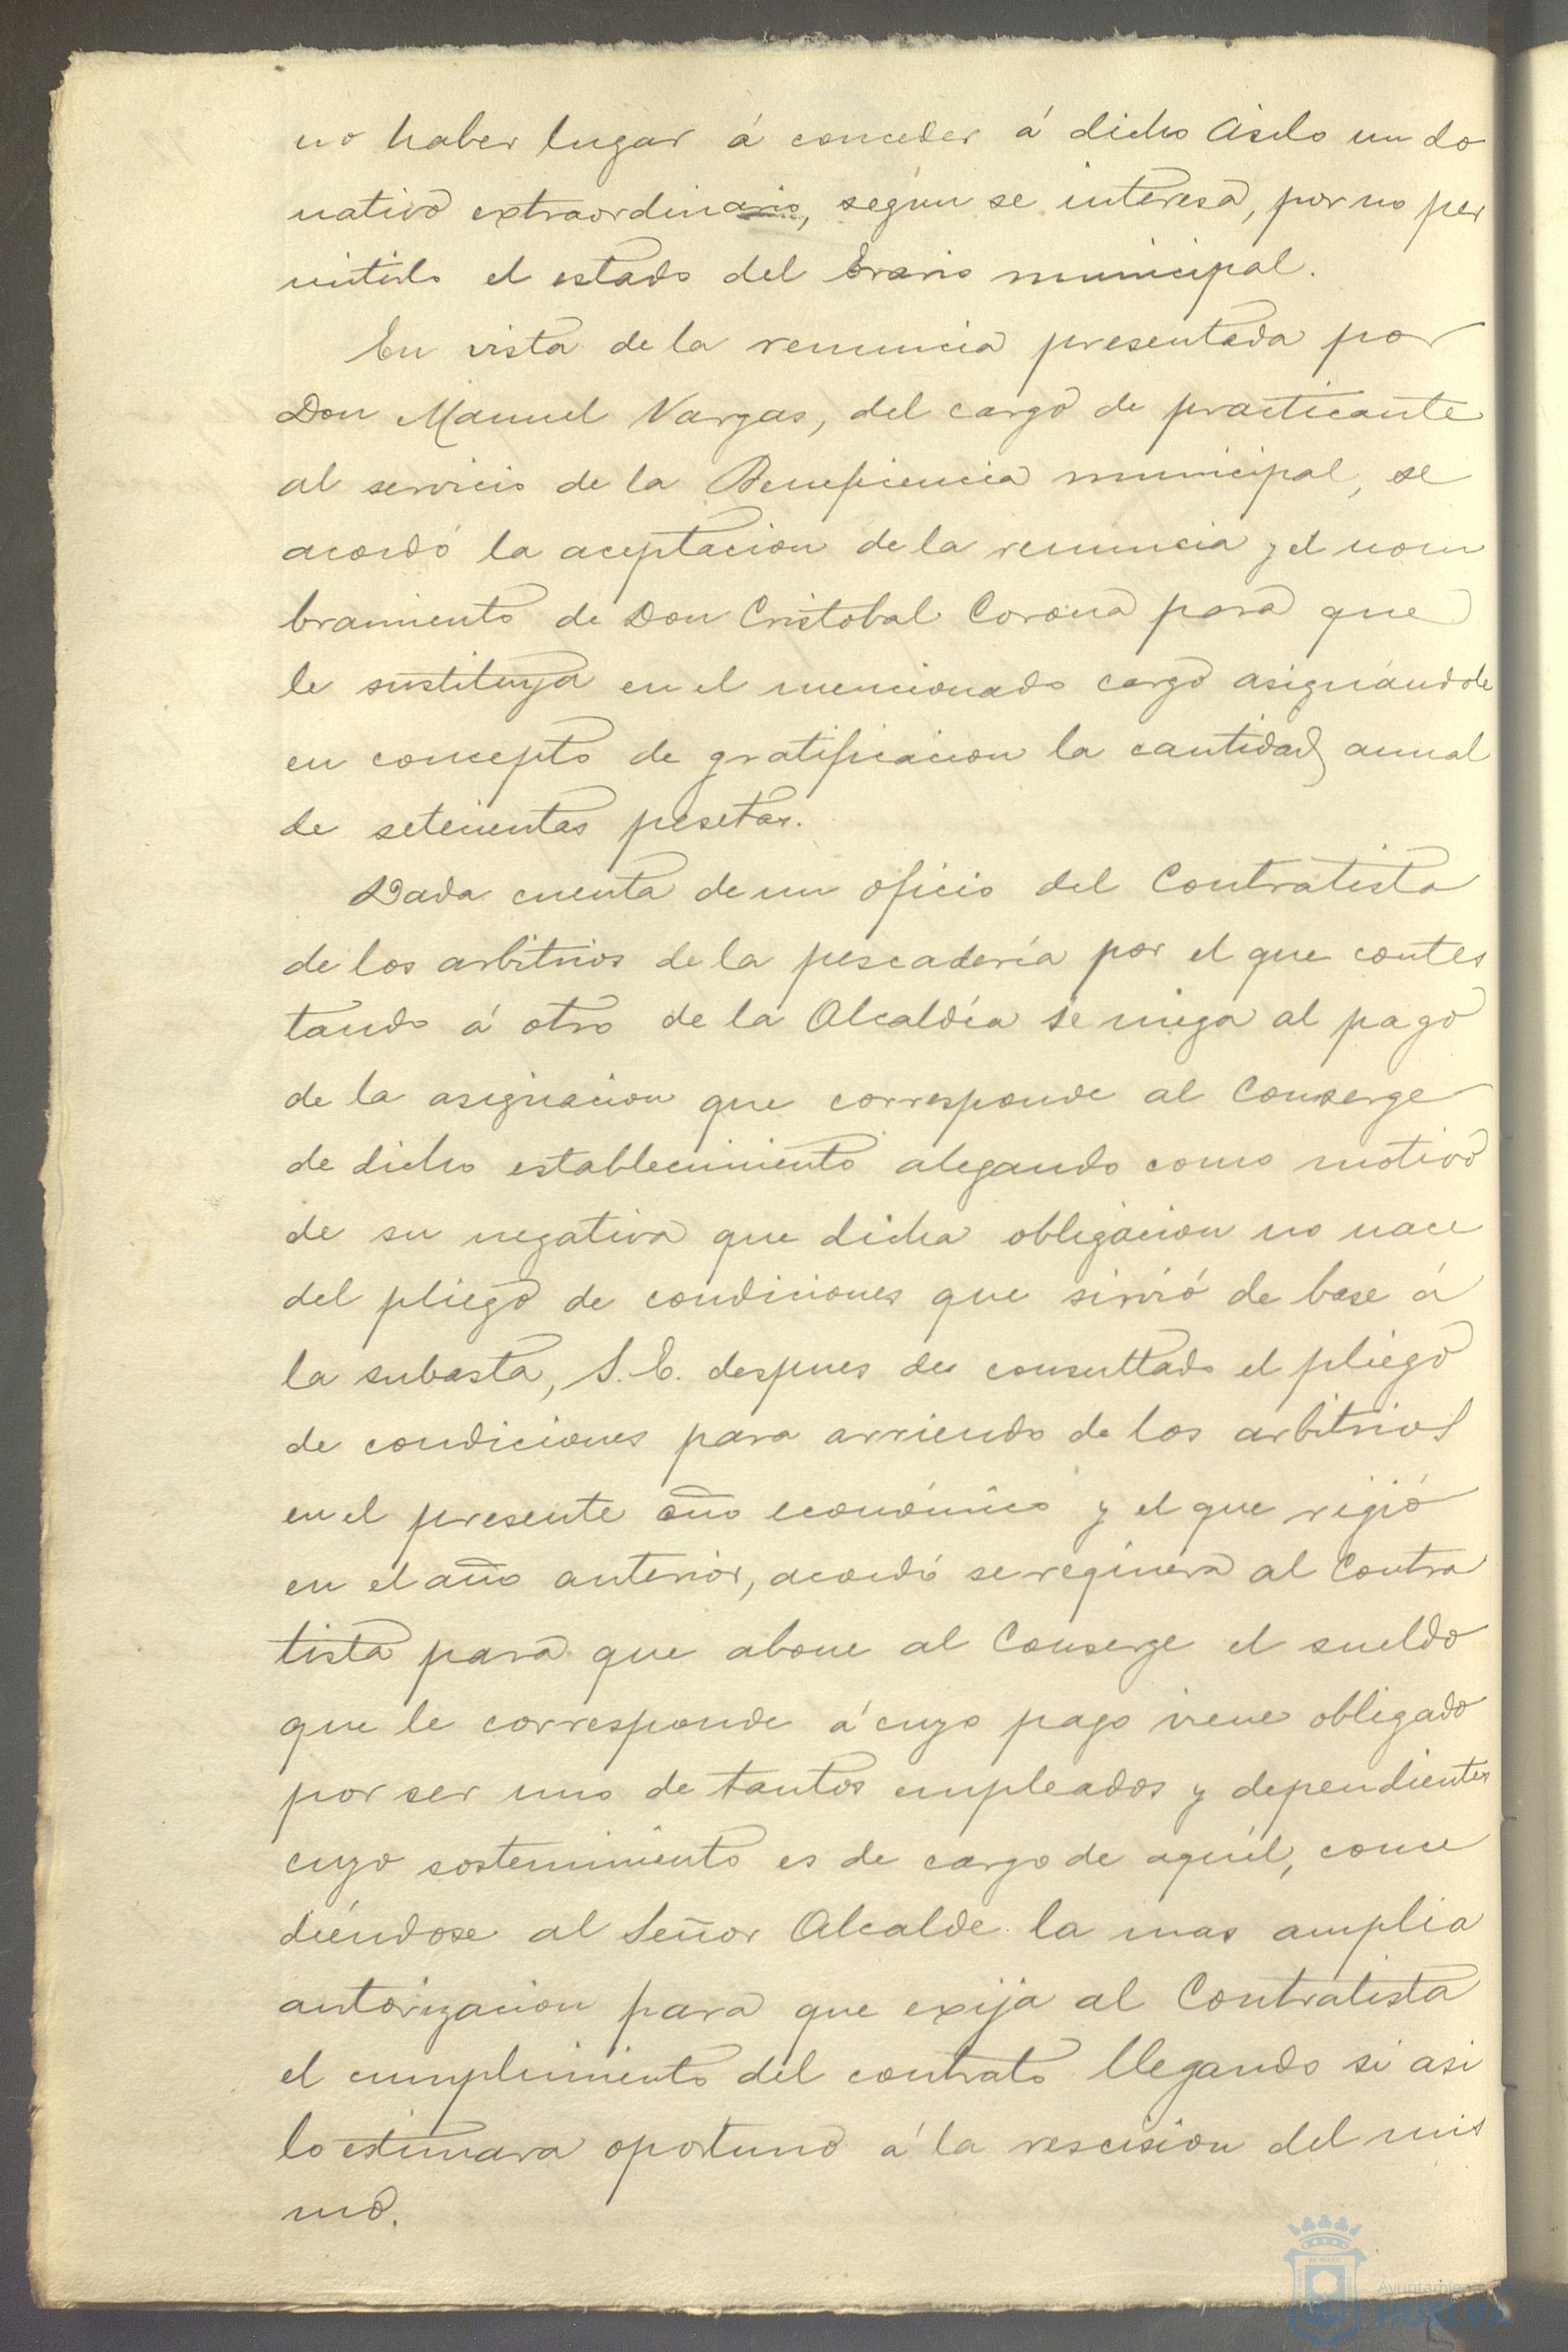 no haber lugar á conceder á dicho Asilo un do
nativo extraordinario, según se interesa, por no per
mitirlo el estado del Erario municipal.
En vista de la renuncia presentada por
Don Manuel Vargas, del cargo de practicante
al servicio de la Beneficencia municipal, se
acordó la aceptacion de la renuncia y el nom
bramiento de Don Cristobal Corona para que
le sustituya en el mencionado cargo asignándole
en concepto de gratificacion la cantidad anual
de setecientas pesetas.
Dada cuenta de un oficio del Contratista
de los arbitrios de la pescadería por el que contes
tando á otro de la Alcaldía se niega al pago
de la asignacion que corresponde al Conserge
de dicho establecimiento alegando como motivo
de su negativa que dicha obligacion no nace
del pliego de condiciones que sirvió de base á
la subasta, S. E. despues de consultado el pliego
de condiciones para arriendo de los arbitrios
en el presente año económico y el que rigió
en el año anterior, acordó se requiera al Contra
tista para que abone al Conserge el sueldo
que le corresponde á cuyo pago viene obligado
por ser uno de tantos empleados y dependientes
cuyo sostenimiento es de cargo de aquél, conce
diéndose al Señor Alcalde la mas amplia
autorizacion para que exija al Contratista
el cumplimiento del contrato llegando si asi
lo estimara oportuno á la rescision del mis
mo.
Ayuntamiento
HUELVA